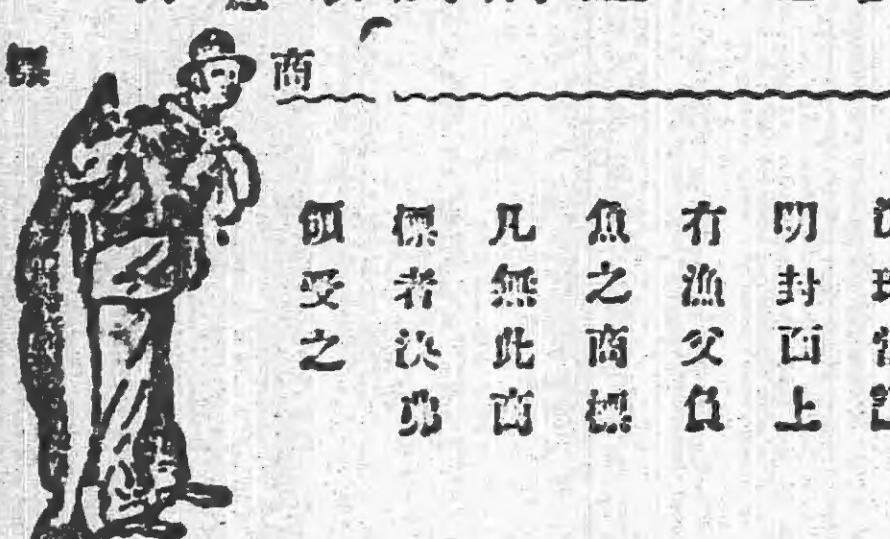 商標
明封面上
有漁父負
魚之商標
凡無此商
標者決弗
領受之